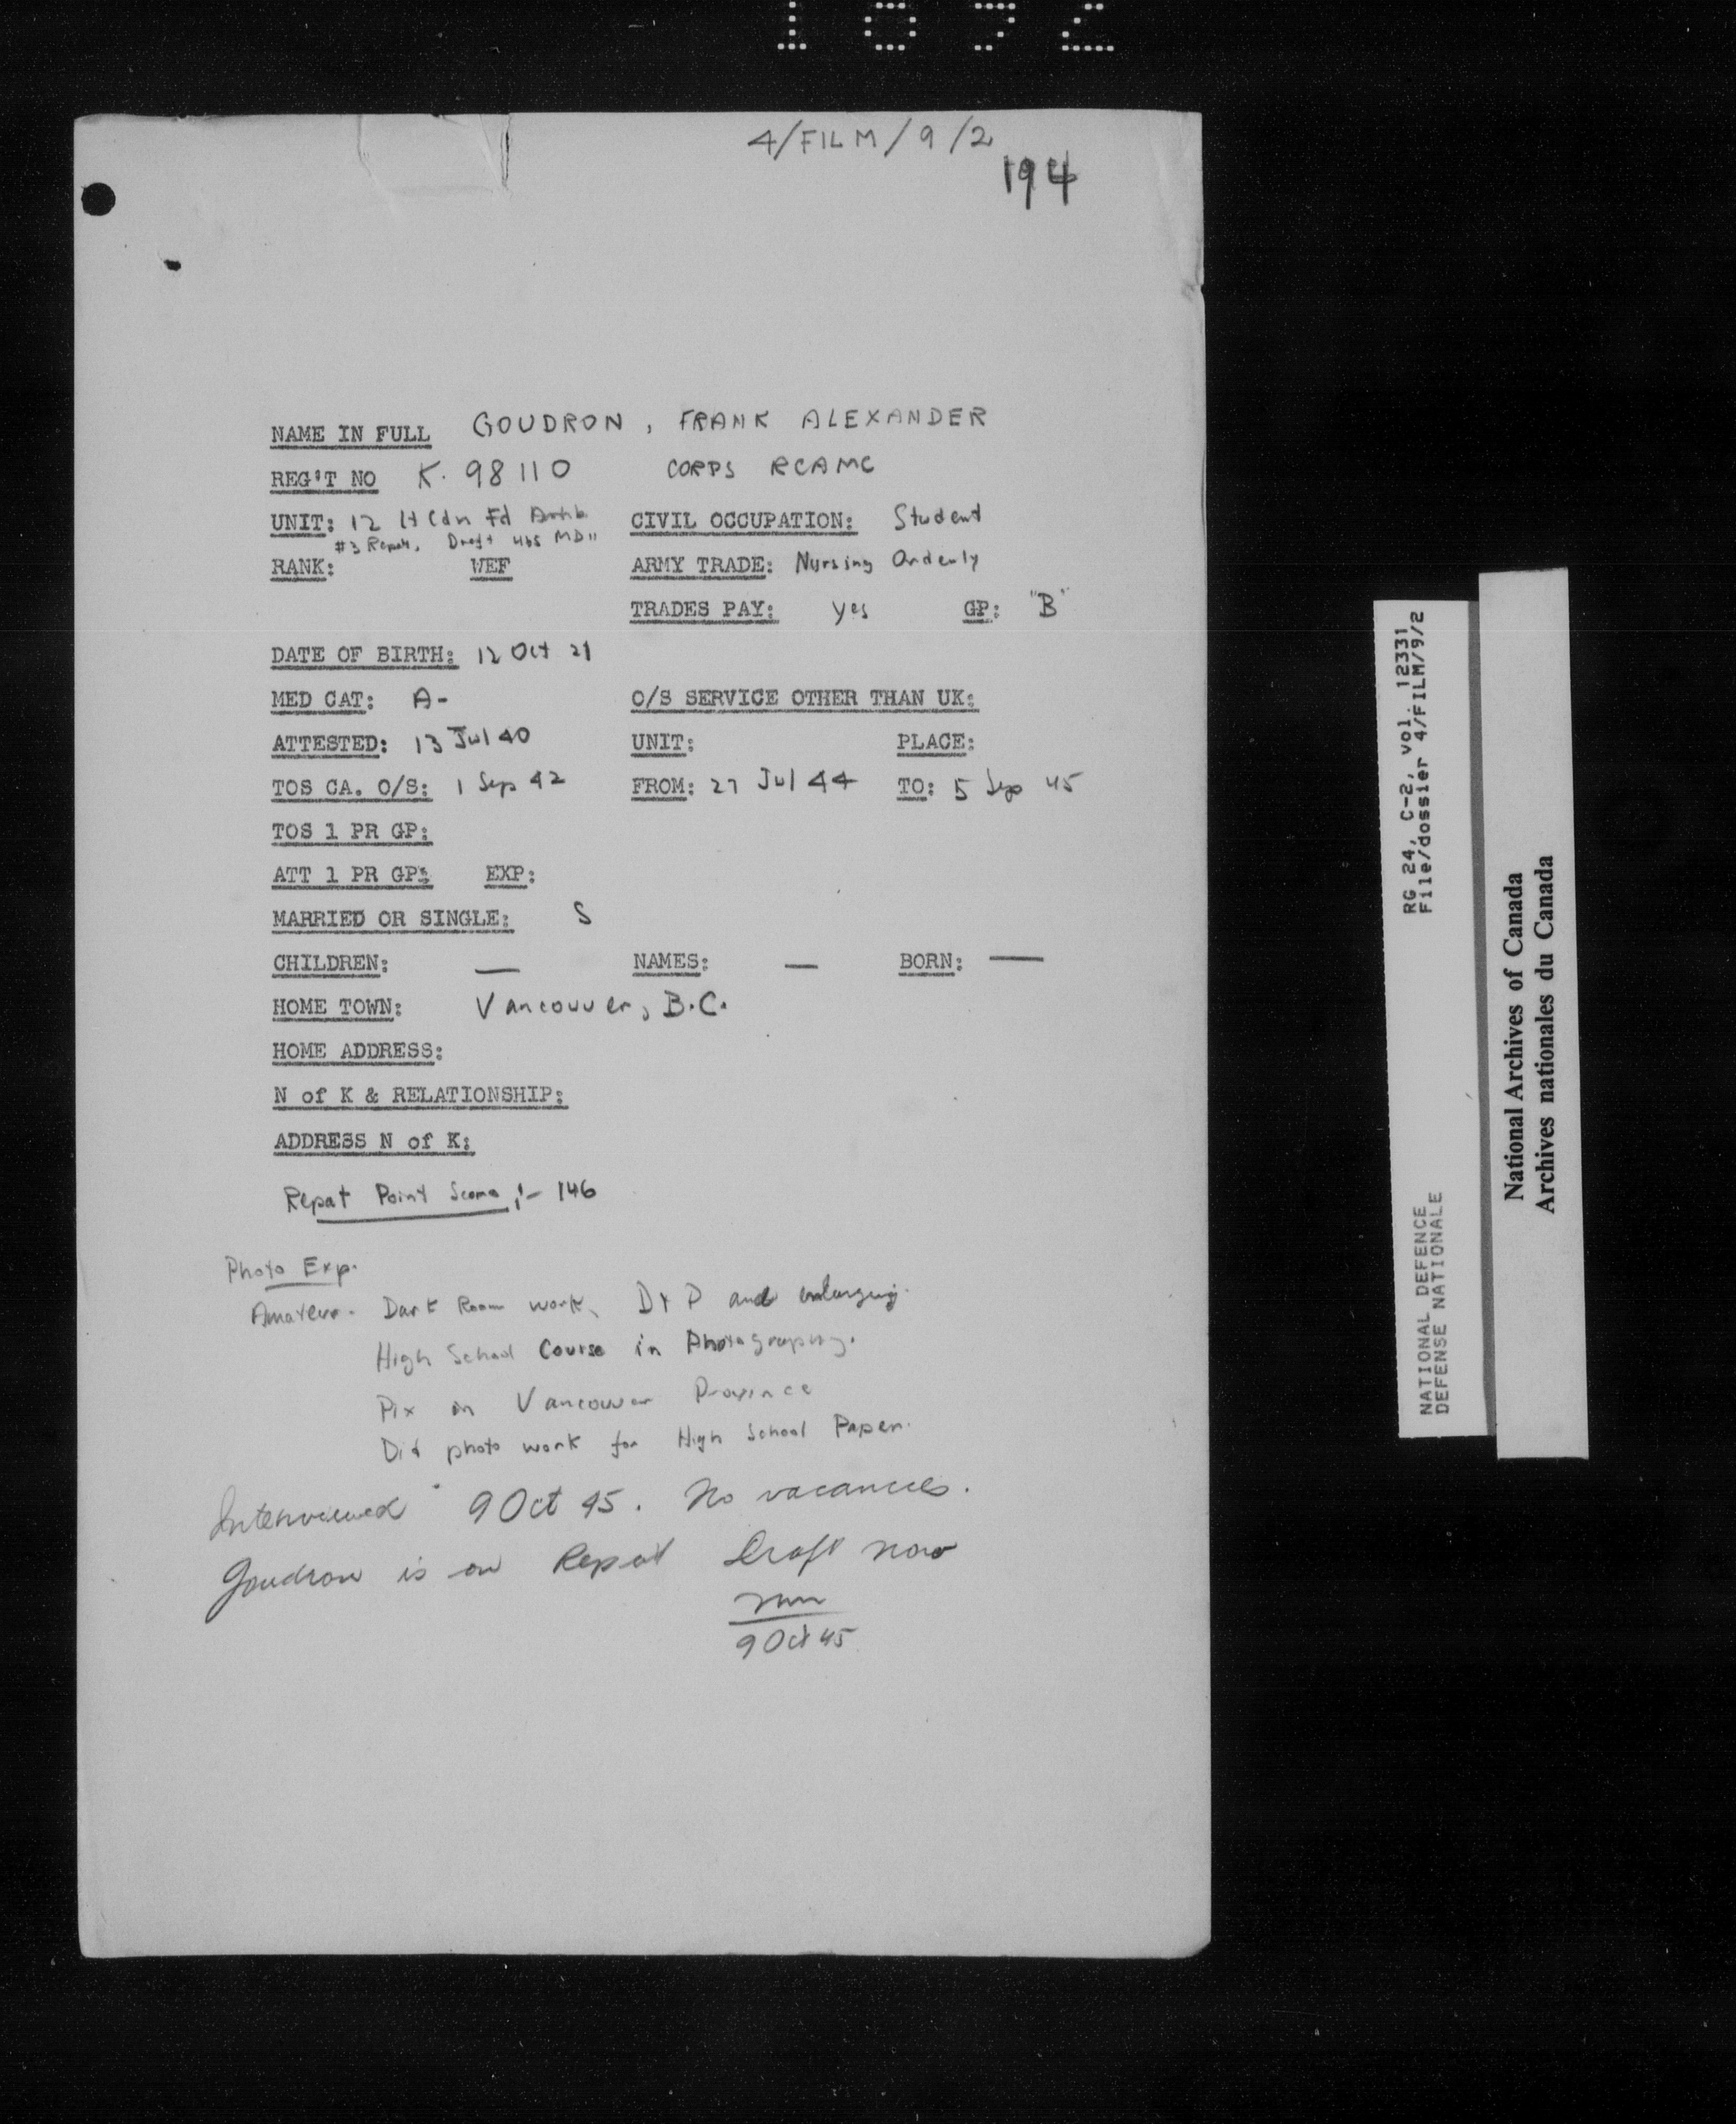 1092
4/FILM/9/2
194
NAME IN FULL GOUDRON, FRANK ALEXANDER
REG'T NO K. 98110 CORPS RCAMC
UNIT: 12 Lt Cdn Fd CIVIL OCCUPATION: Student
#3 Repat. Draft MD 11
RANK: WEF ARMY TRADE: Nursing Orderly
TRADES PAY: yes GP: "B"
DATE OF BIRTH: 12 Oct 21
MED CAT: A- O/S SERVICE OTHER THAN UK:
ATTESTED: 13 Jul 40 UNIT: PLACE:
TOS CA. O/S: 1 Sep 42 FROM: 27 Jul 44 TO: 5 Sep 45
TOS 1 PR GP:
ATT 1 PR GP: EXP:
MARRIED OR SINGLE: S
CHILDREN: — NAMES: — BORN: —
HOME TOWN: Vancouver, B.C.
HOME ADDRESS:
N of K & RELATIONSHIP:
ADDRESS N of K:
Repat Point Score:- 146
Photo Exp.
Amateur. Dark Room work, D & P and enlarging.
High School Course in Photography.
Pix in Vancouver Province
Did photo work for High School Paper.
Interviewed 9 Oct 45. No vacancies.
Goudron is on Repat Draft now
9 Oct 45
RG 24, C-2, vol. 12331
File/dossier 4/FILM/9/2
NATIONAL DEFENCE
DEFENSE NATIONALE
National Archives of Canada
Archives nationales du Canada